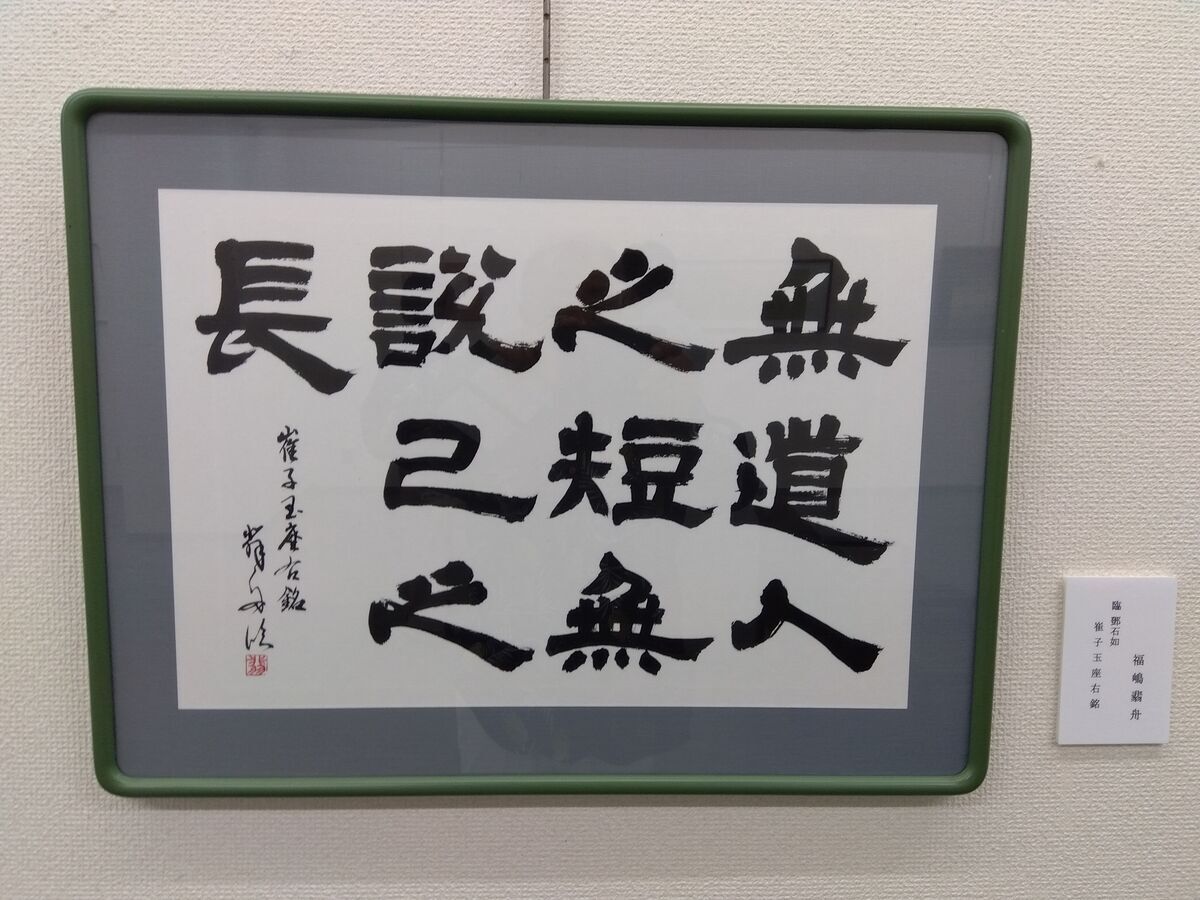 無道人
之短無
説己之
長
崔子玉座右銘
翡舟臨
翡
福嶋翡舟
臨 鄧石如
崔子玉座右銘